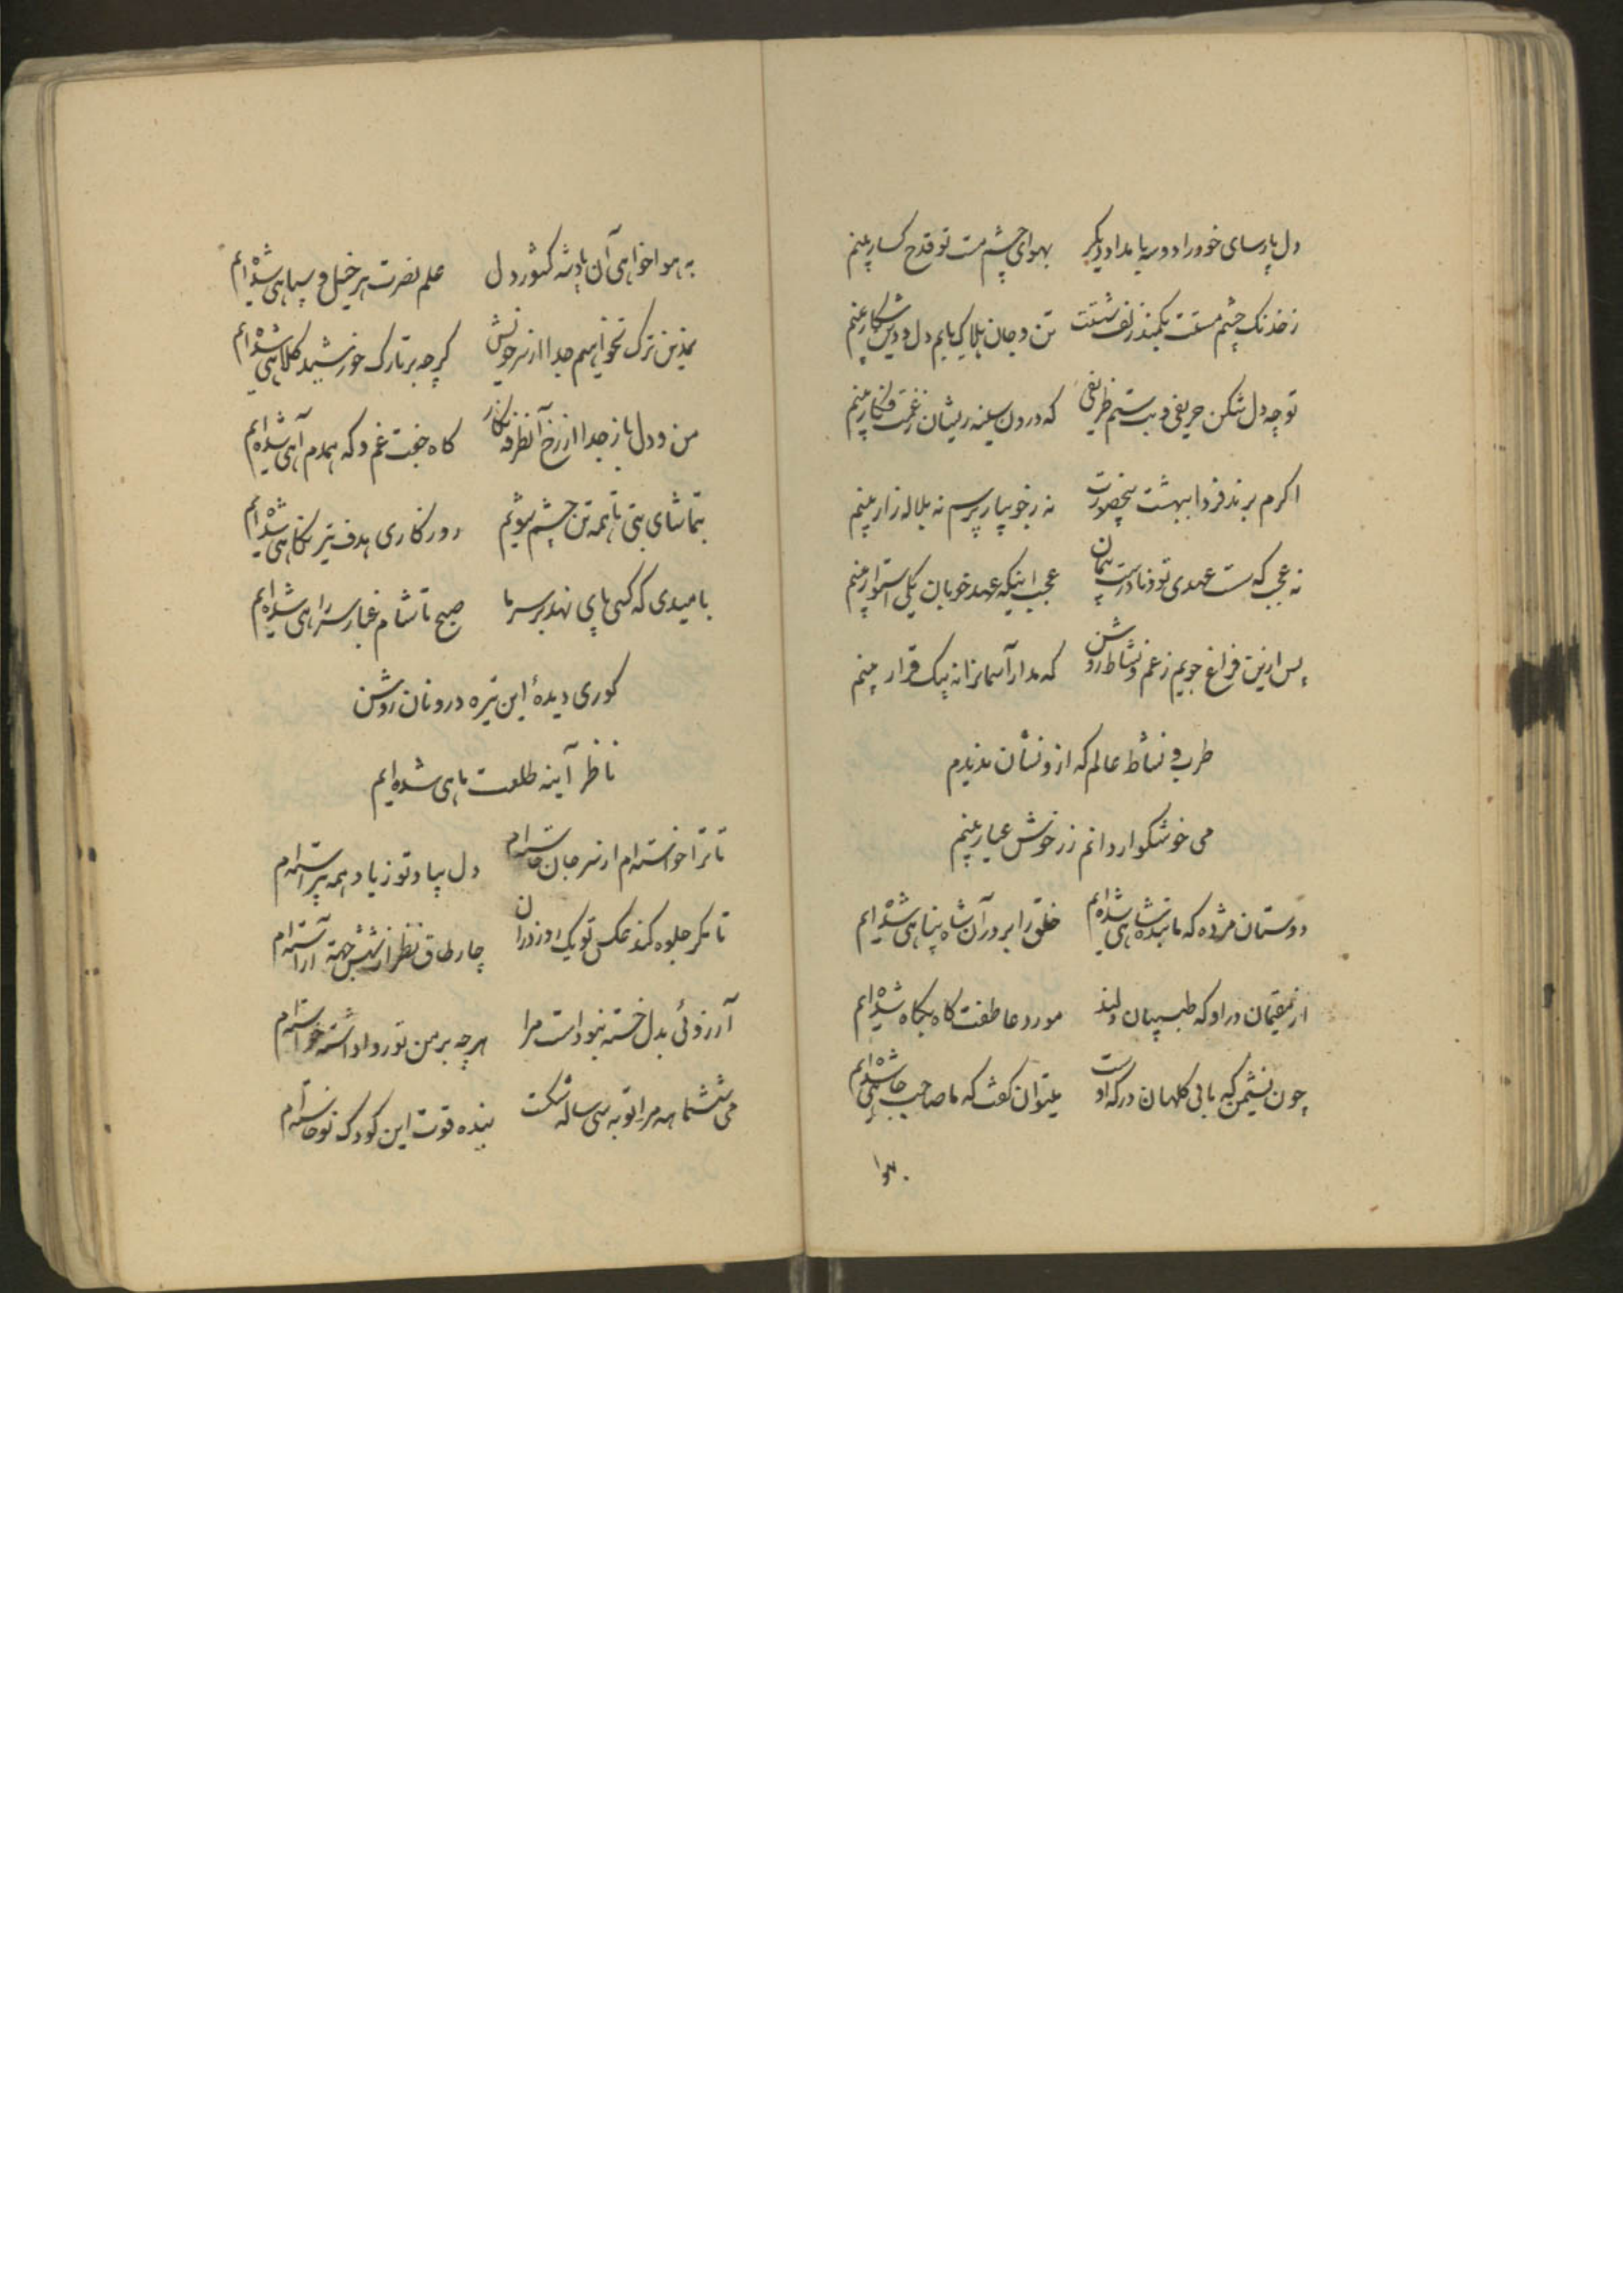 دل پارسای خود را دو سه بامداد دیگر بهوای چشم مست تو قدح کسار بینم
ز خدنک چشم مستت بکمند زلف شستت تن و جان هلاک یابم دل و دین شکار بینم
تو چه دل شکن حریفی و بت ستم ظریفی که درون سینه ریشان ز غمت فکار بینم
اکرم برند فردا ببهشت بیحضورت نه ز جویبار پرسم نه بلاله زار بینم
نه عجب که سست عهدی تو و نادرست پیمان عجب اینکه عهد خوبان یکی استوار بینم
پس ازین فراغ جویم ز غم و نشاط روشن که مدار آسمانرا نه بیک قرار بینم
طرب و نشاط عالم که ازو نشان ندیدم
می خوشکوار دانم زر خوش عیار بینم
دوستان مژده که ما بنده شاهی شده‌ایم خلق را بر در آن شاه پناهی شده‌ایم
از مقیمان در او که طبیبان دلند مورد عاطفت کاه بکاه شده‌ایم
چون نشیمن که بی کلهان درکه اوست میتوان کفت که ما صاحب جاهی شده‌ایم
۱۳۰
به هواخواهی آن پادشه کشور دل علم نصرت هر خیل و سپاهی شده‌ایم
نمد ترک نخواهیم جدا از سر خویش کرچه بر تارک خورشید کلاهی شده‌ایم
من و دل باز جدا از رخ آنطرفه نکار کاه جفت غم و که همدم آهی شده‌ایم
بتماشای بتی تا همه تن چشم شویم روزکاری هدف تیر نکاهی شده‌ایم
بامیدی که کسی پای نهد بر سر ما صبح تا شام غبار سر راهی شده‌ایم
کوری دیدهٔ این تیره درونان روشن
ناظر آینه طلعت ماهی شده‌ایم
تا ترا خواسته‌ام از سر جان خاسته‌ام دل بیاد تو ز یاد همه پیراسته‌ام
تا مکر جلوه کند عکس تو یک روز در آن چار طاق نظر از شش جهة آراسته‌ام
آرزوئی بدل خسته نبوداست مرا هر چه بر من تو روا داشته خواسته‌ام
می ششماهه مرا توبه سی ساله شکست بنده قوت این کودک نوخاسته‌ام